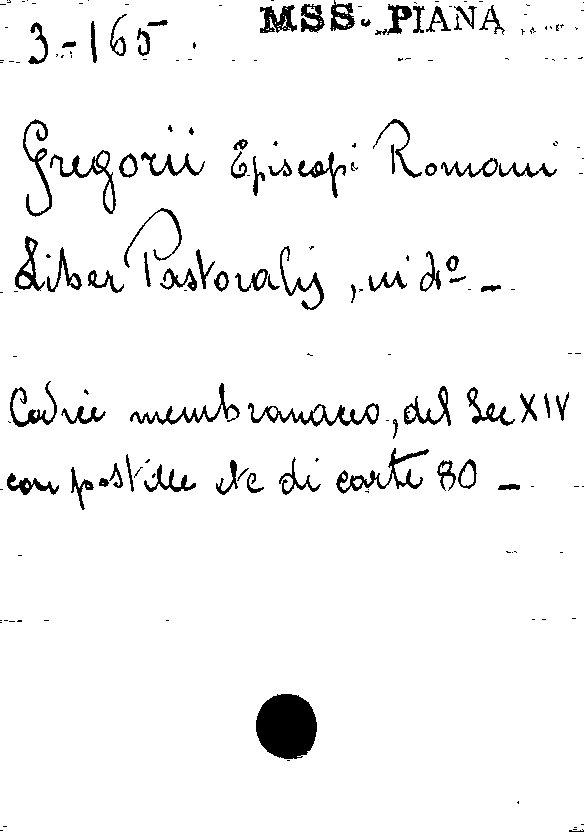 3-165. MSS. PIANA
Gregorii Episcopi Romani
Liber Pastoralis, in 4º -
Codice membranaceo, del Sec XIV
con postille etc di carte 80 -